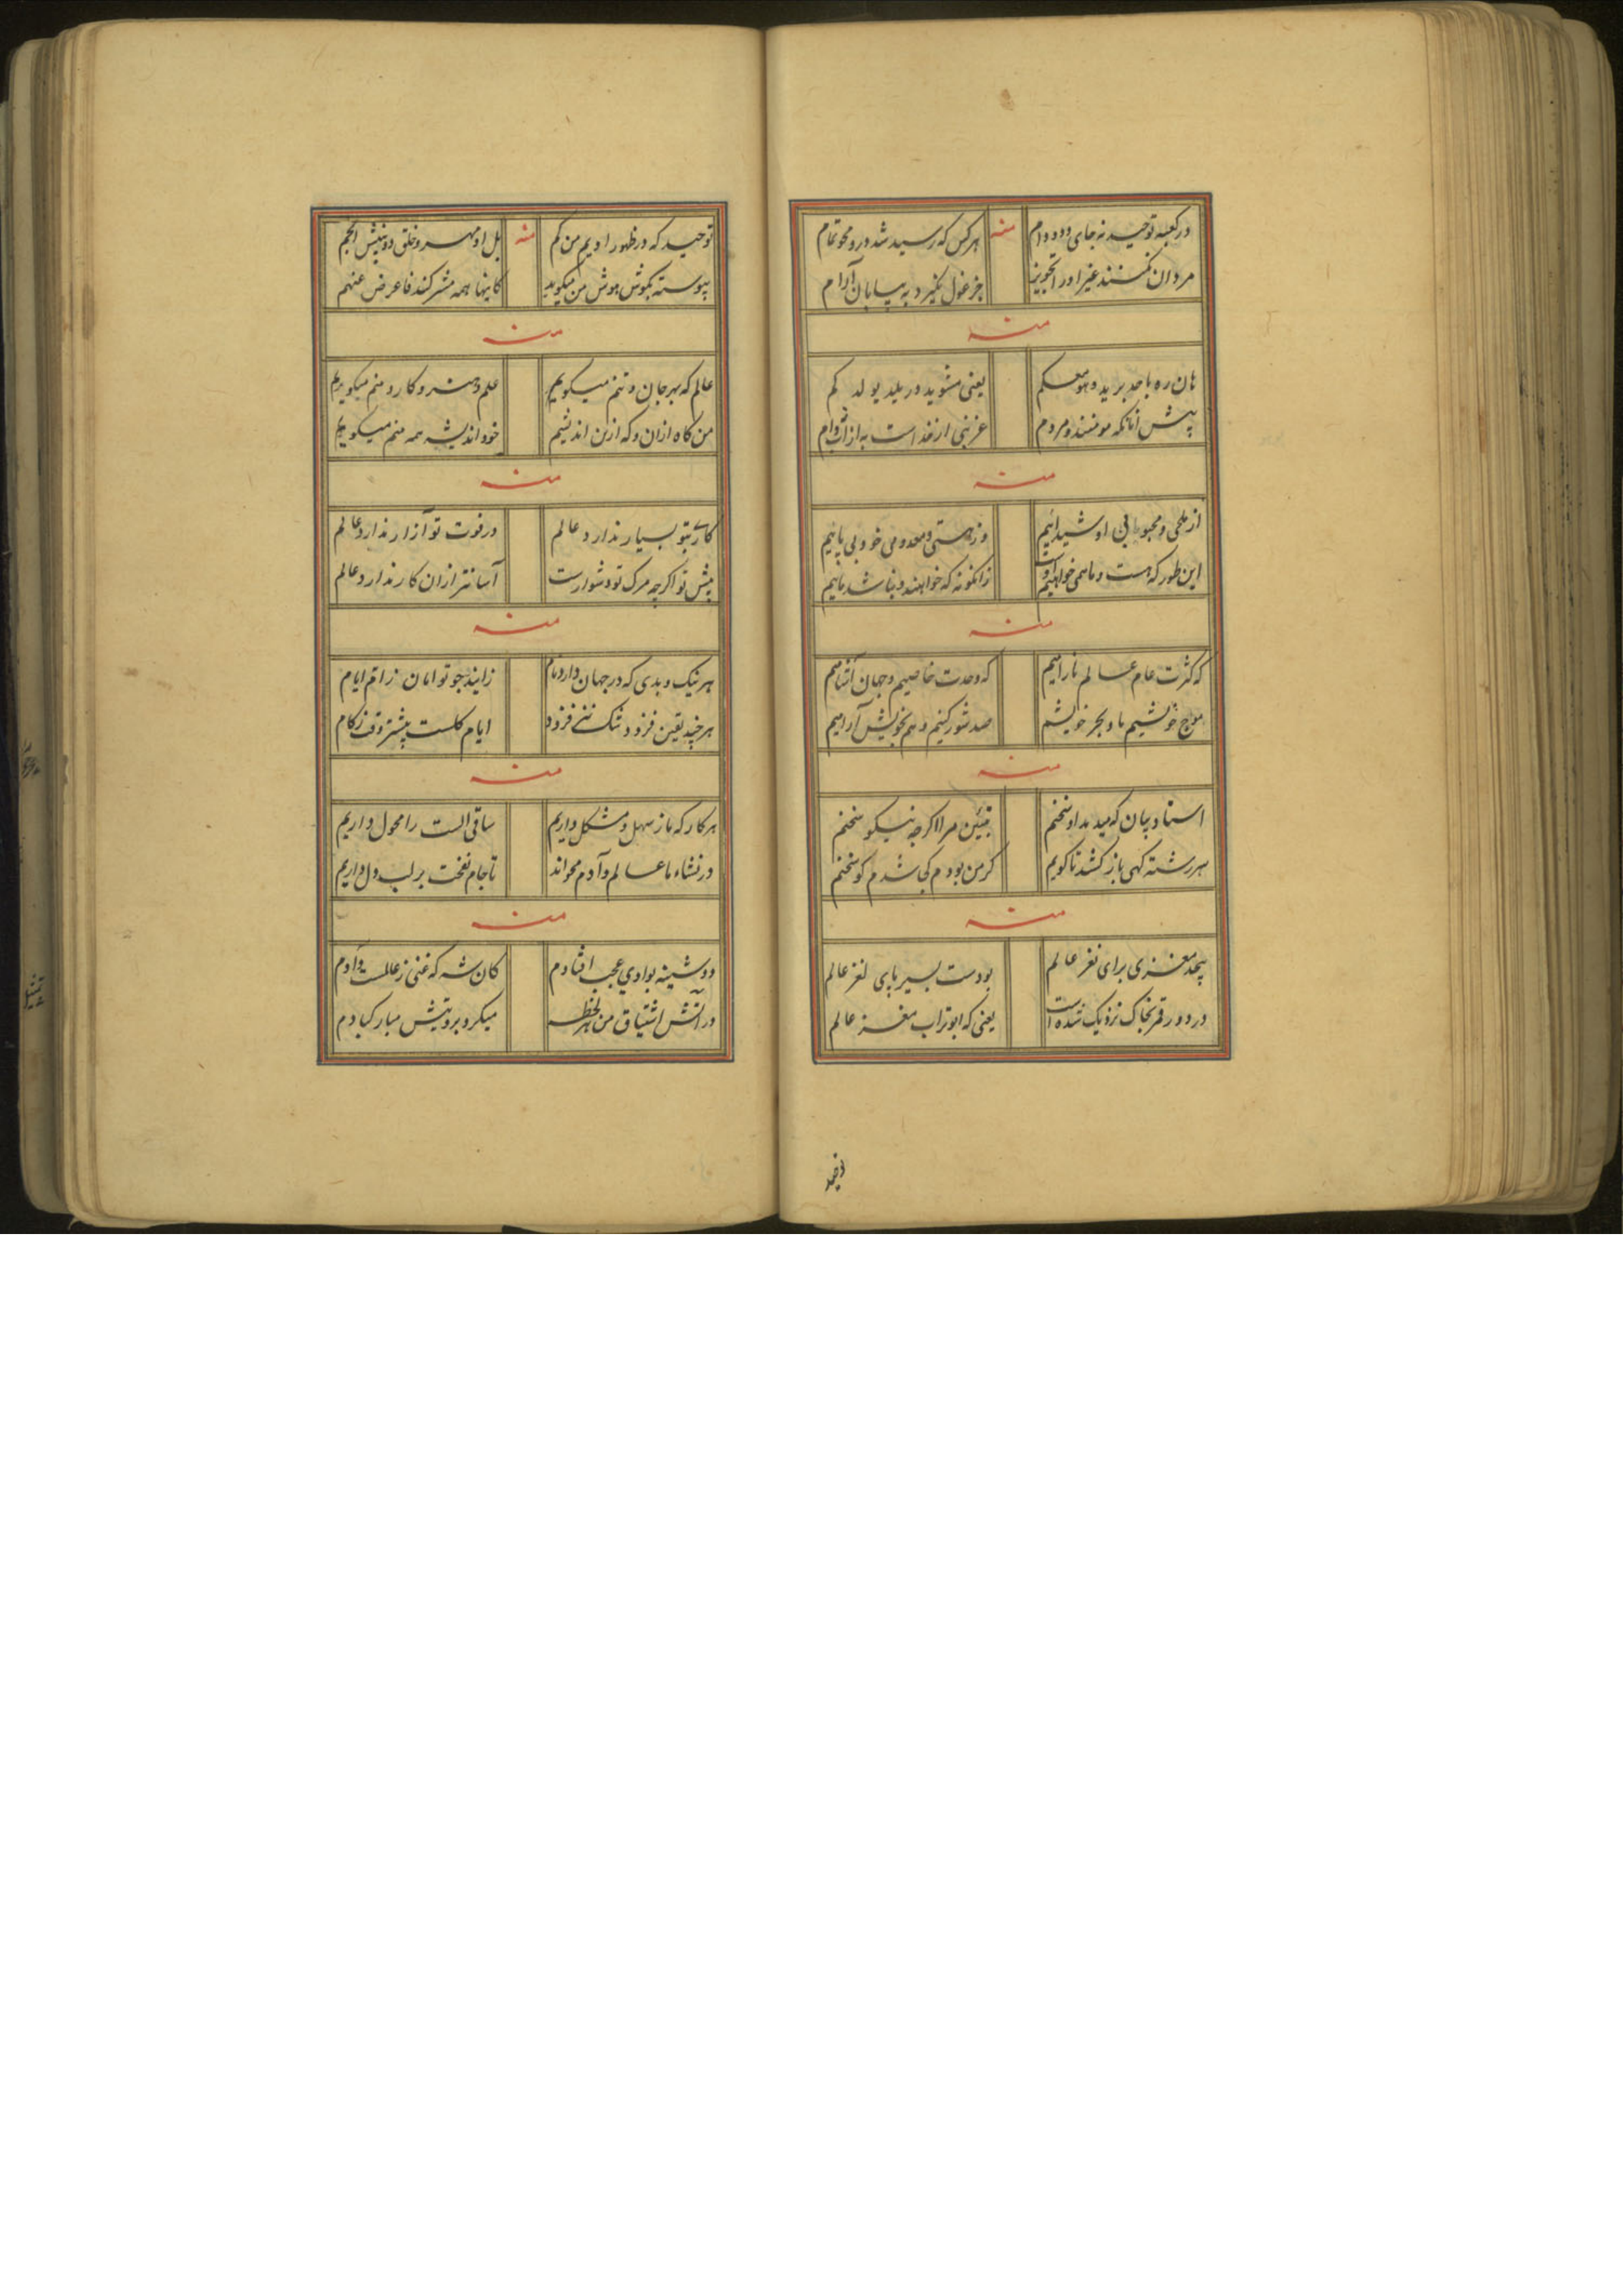 در کعبه توحید نه جای دد و دام منه هر کس که رسید شد درو محو تمام
مردان نکنند غیر او را تجویز جز غول نگیرد به بیابان آرام
منه
هان ره باحد برید و هو معکم یعنی مشوید در یلد یولد کم
پیش آنانکه مومنند و مردم
منه
از ملحی و محبوبی او شیدائیم وز هستی و معدومی خود بی پائیم
این طور که هست و ما همی خواهیم اوست زانگونه که خواهند و نباشد مائیم
منه
که کثرت عام عالم آرائیم که وحدت خاصیم و جان آشامیم
موج خوشیم ما و بحر خویشیم صد شور کنیم و هم بخویش آرامیم
منه
استاد بیان که میدهد او سخنم تبیین مرا اگرچه نیکو سخنم
سر رشته کهی باز کشد تا کویم کر من بودم کجا شدم کو سخنم
منه
پیچد مغزی برای نغز عالم بودست بسیر پای لغز عالم
در دور قمر بخاک نزدیک شده است یعنی که ابوتراب مغز عالم
توحید که در ظهور اویم من کم منه بل او مهر و خلق دو بینش انجم
پیوسته بکوش هوش من میکوید کاینها همه مشرکند فاعرض عنهم
منه
عالم که بهر جان و تنم میکویم علم و هنر و کار و منم میکویم
من کاه ازان و که ازین اندیشم خود اندیشه همه منم میکویم
منه
کاری بتو بسیار ندارد عالم در فوت تو آزار ندارد عالم
پیش تو اکرچه مرک تو دشوارست آسانتر ازان کار ندارد عالم
منه
هر نیک و بدی که در جهان دارد نام زایند چو توامان ز ام ایام
هر چند یقین فزود شک نیز فزود ایام کلست پیشتر وقت زکام
منه
هر کار که ما ز سهل و مشکل داریم ساقی الست را محول داریم
در نشاء ما عالم و آدم محواند تا جام نفخت بر لب دل داریم
منه
دوشینه بوادی عجب افتادم کان شه که غنی ز عالمست و آدم
در آتش اشتیاق من هر لحظه میکرد بروتش مبارکبادم